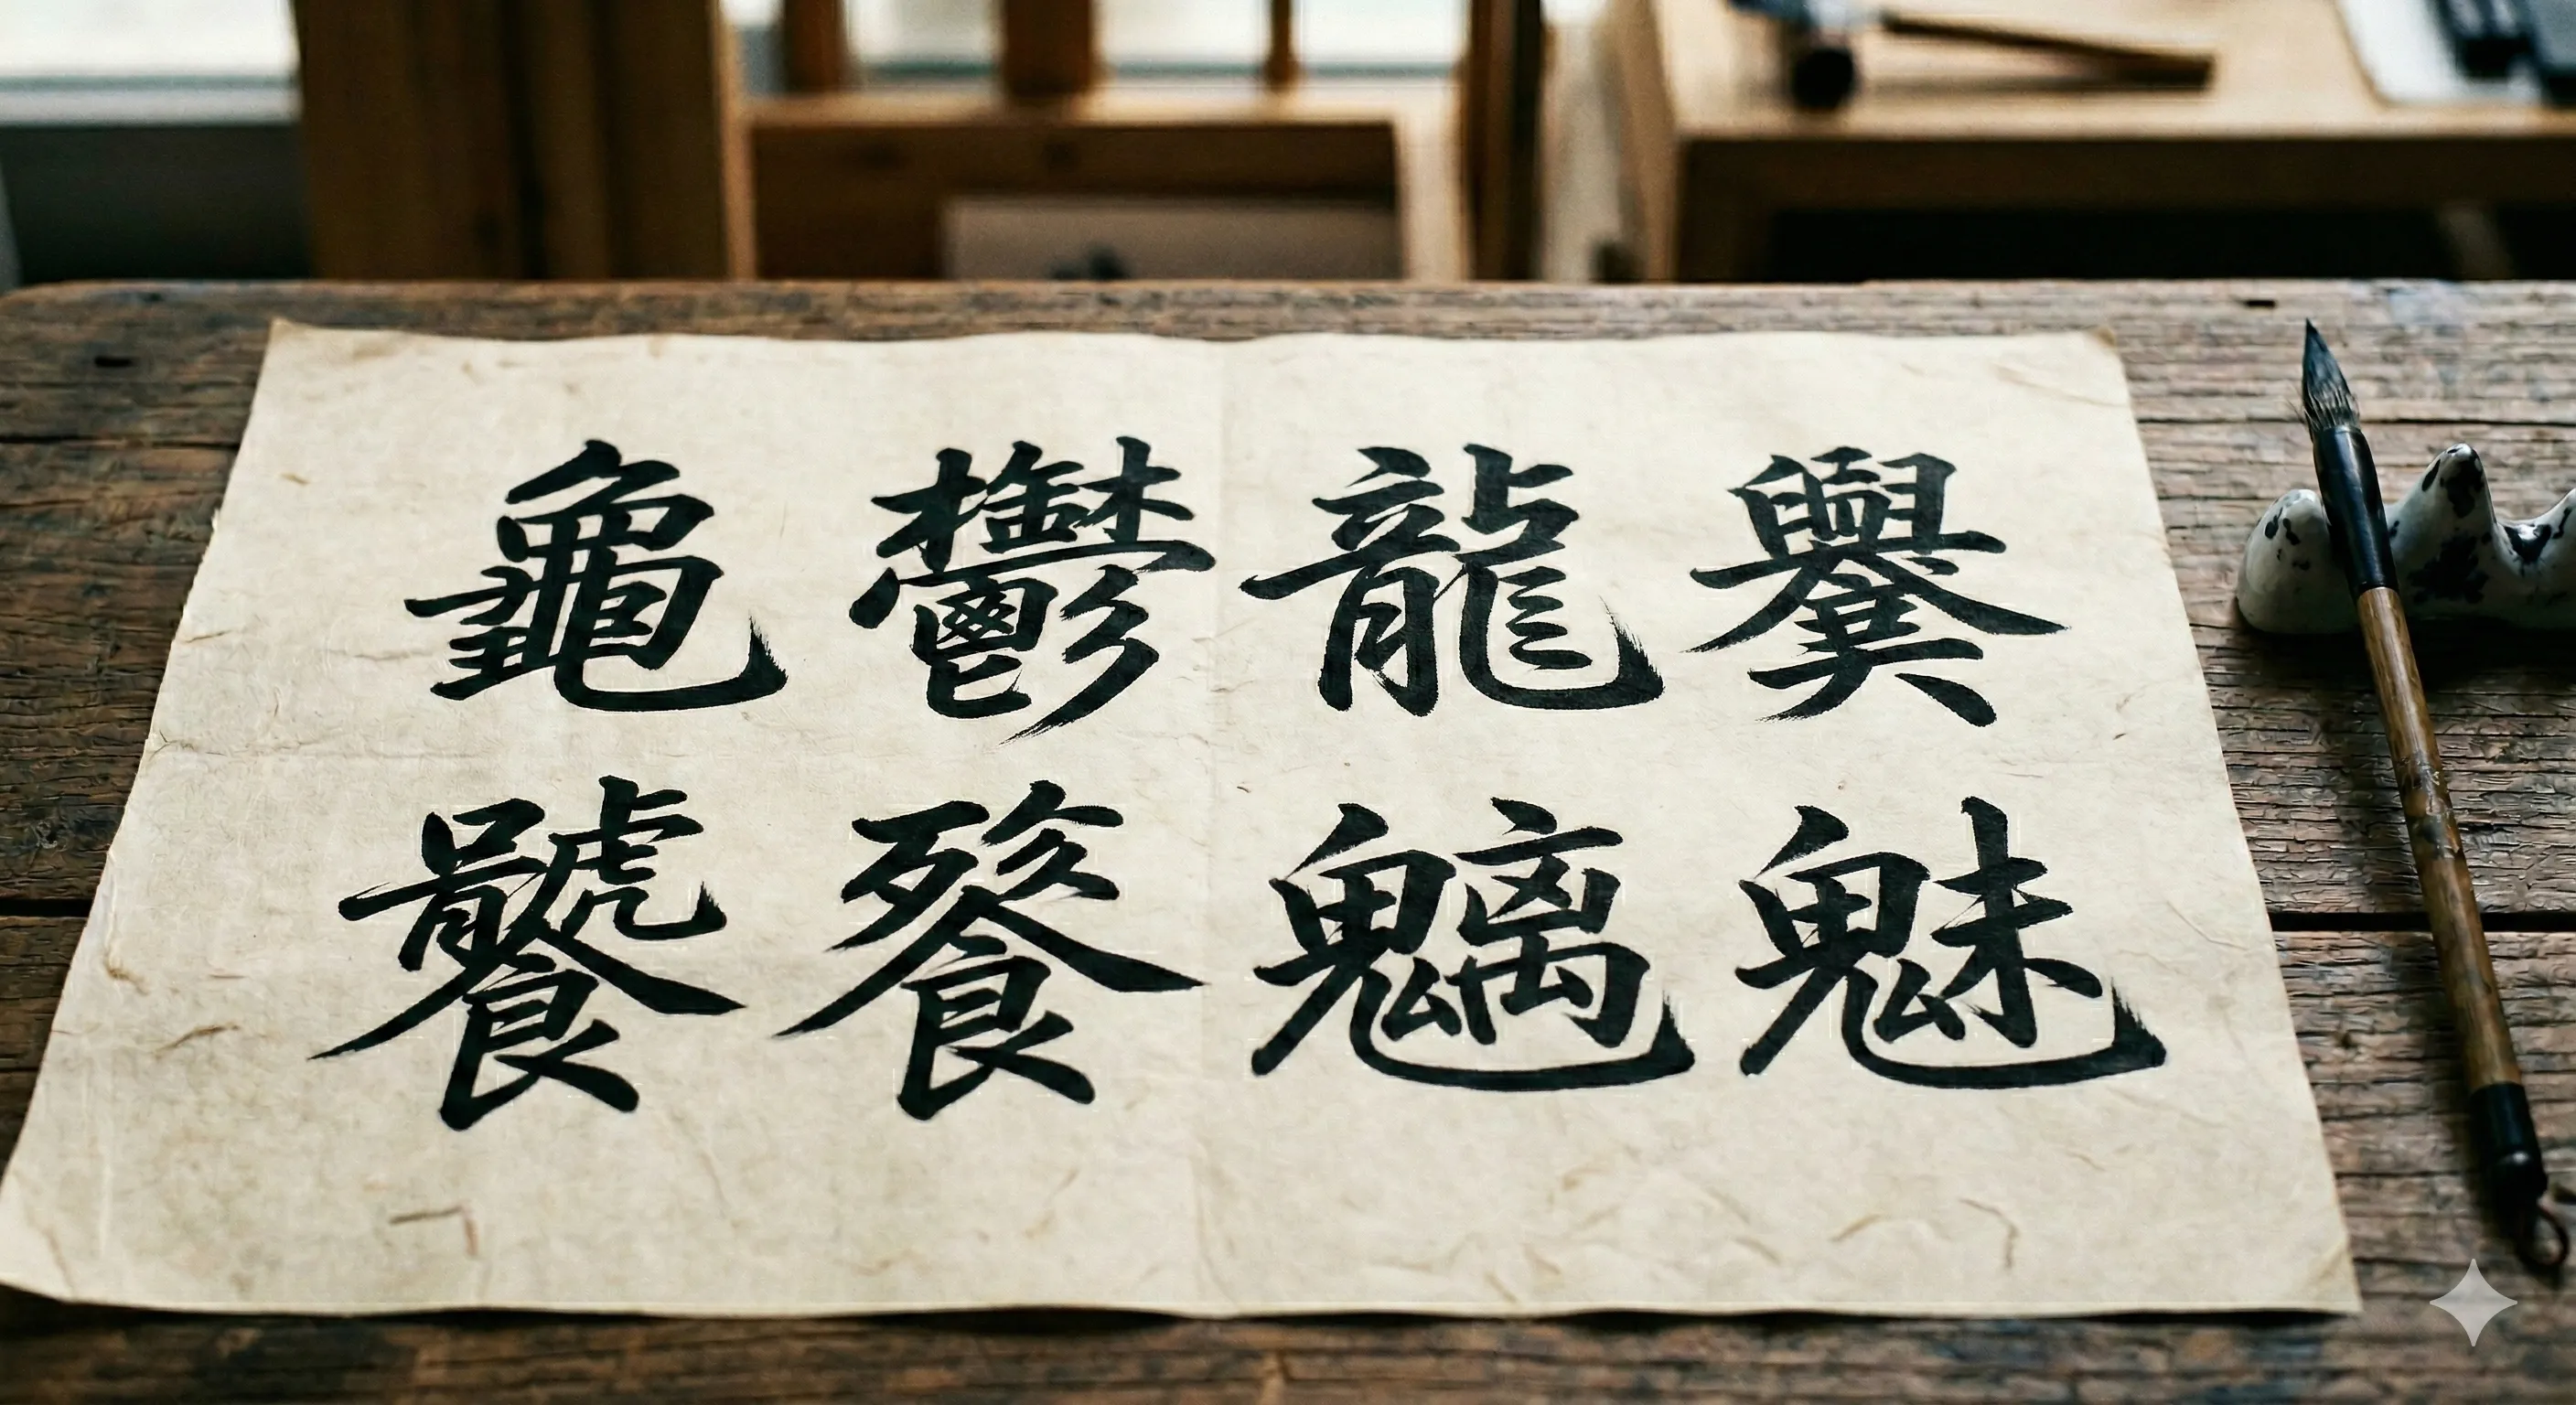 龜鬱龍
饕餮魑魅